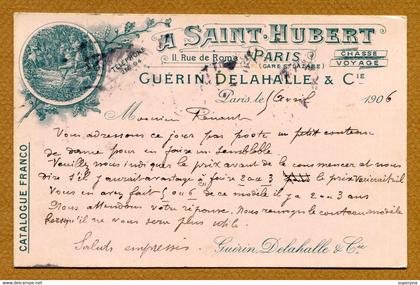 A SAINT-HUBERT
11, Rue de Rome PARIS
(GARE St LAZARE)
CHASSE
VOYAGE
TÉLÉPHONE
GUÉRIN, DELAHALLE & CIE
Paris, le 5 avril 1906
Monsieur Renault
Vous adressons ce jour par poste un petit couteau
de dame pour en faire un semblable
Veuillez nous indiquer le prix avant de le commencer et nous
dire s'il y aurait avantage à faire 2 ou 3 le prix
Vous en avez fait 5 ou 6 de ce modèle il y a 2 ou 3 ans
Nous attendons votre réponse. Nous renvoyer le couteau modèle
lorsqu'il ne vous sera plus utile.
Saluts empressés
Guérin, Delahalle & Cie
CATALOGUE FRANCO